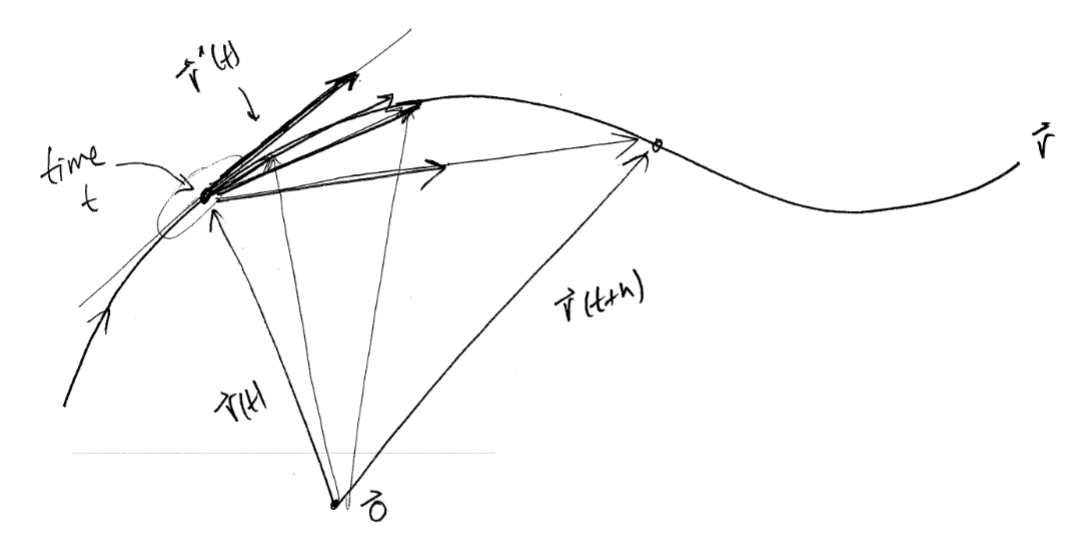 r⃗'(t)
time
t
r⃗
r⃗(t+h)
r⃗(t)
0⃗